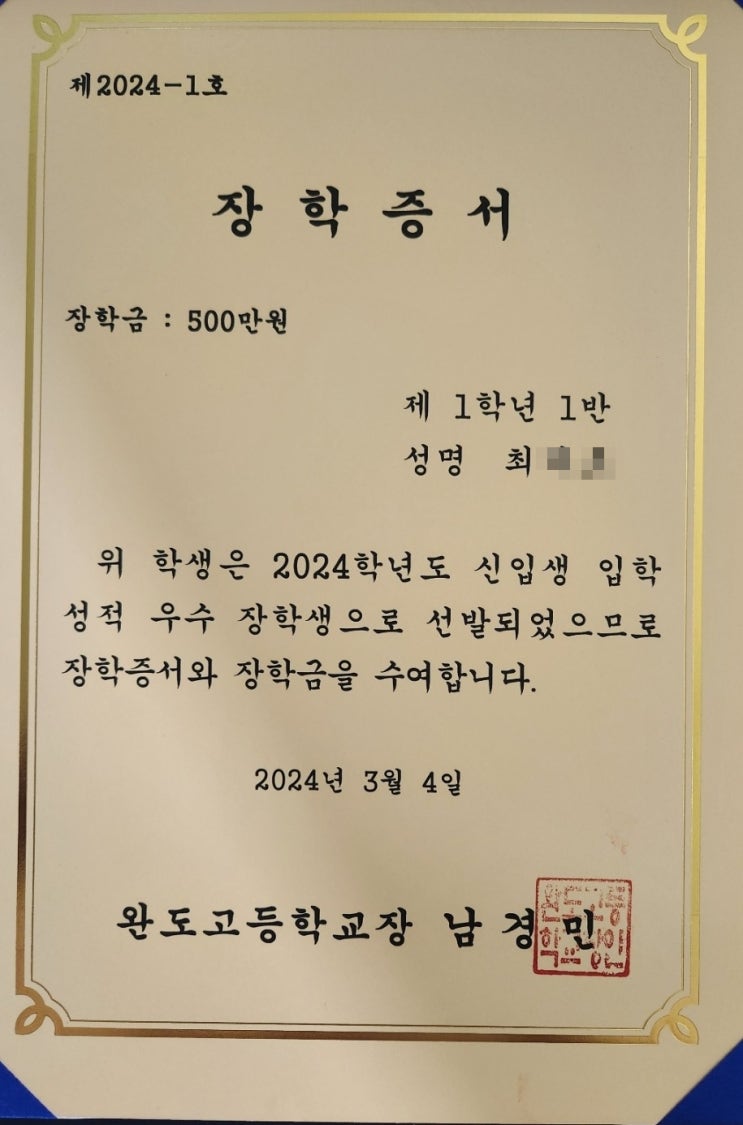 제2024-1호
장 학 증 서
장학금 : 500만원
제 1학년 1반
성명 최
위 학생은 2024학년도 신입생 입학
성적 우수 장학생으로 선발되었으므로
장학증서와 장학금을 수여합니다.
2024년 3월 4일
완도고등학교장 남 경 민